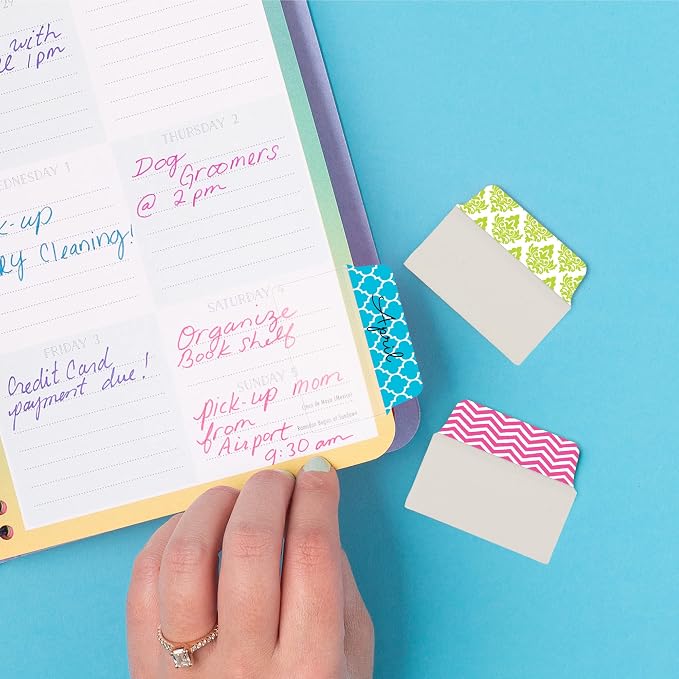 with
1pm
THURSDAY 2
Dog
Groomers
@ 2 pm
EDNESDAY 1
k-up
ry Cleaning!
FRIDAY 3
Credit Card
payment due!
SATURDAY 4
Organize
Book shelf
SUNDAY 5
Cinco de Mayo (Mexico)
Ramadan Begins at Sundown
pick-up mom
from
Airport
9:30 am
April